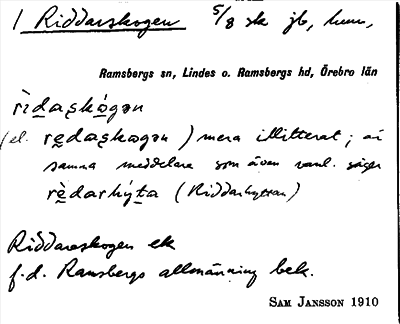 1 Riddarskogen 5/8 sk jb, hem,
Ramsbergs sn, Lindes o. Ramsbergs hd, Örebro län
rìdaskógən
(el. rędaskogən) mera illitterat; av
samma meddelare som även vanl. säger
rèdarhýta (Riddarhyttan)
Riddareskogen ek
f.d. Ramsbergs allmänning bek.
SAM JANSSON 1910